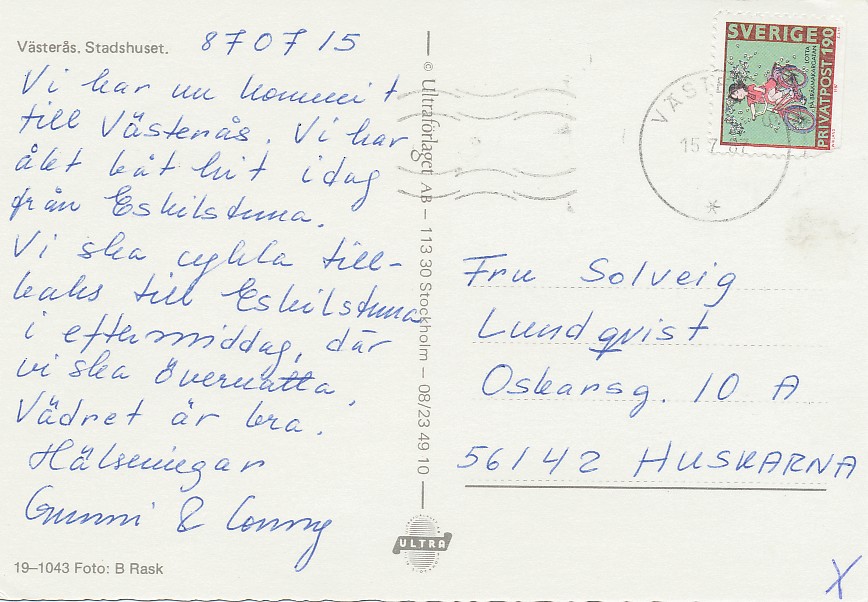 Västerås. Stadshuset.
870715
Vi har nu kommit
till Västerås. Vi har
åkt båt hit idag
från Eskilstuna.
Vi ska cykla till-
baks till Eskilstuna
i eftermiddag, där
vi ska övernatta.
Vädret är bra.
Hälsningar
Gunni & Conny
19–1043 Foto: B Rask
© Ultraförlaget AB – 113 30 Stockholm – 08/23 49 10
ULTRA
SVERIGE
PRIVATPOST 190
LOTTA
15.7.87
Fru Solveig
Lundqvist
Oskarsg. 10 A
56142 HUSKARNA
X